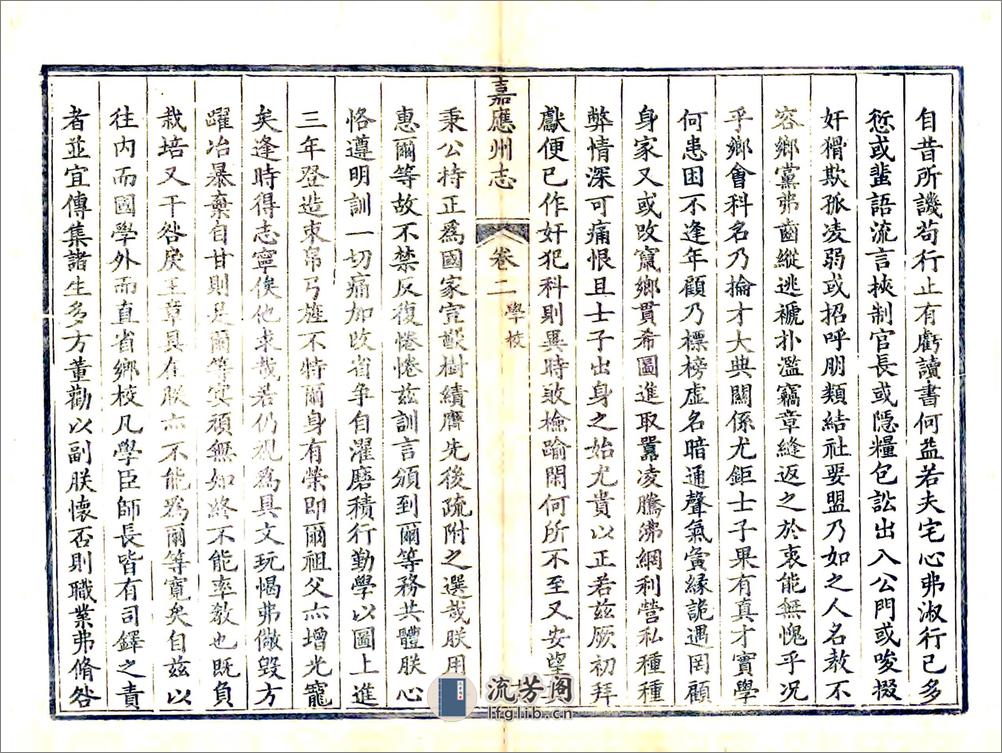 自昔所譏苟行止有虧讀書何益若夫宅心弗淑行己多
愆或蜚語流言挾制官長或隱糧包訟出入公門或唆撥
奸猾欺孤凌弱或招呼朋類結社要盟乃如之人名教不
容鄉黨弗齒縱逃褫扑濫竊章縫返之於衷能無愧乎況
乎鄉會科名乃掄才大典關係尤鉅士子果有真才實學
何患困不逢年顧乃標榜虛名暗通聲氣夤緣詭遇罔顧
身家又或改竄鄉貫希圖進取囂凌騰沸網利營私種種
弊情深可痛恨且士子出身之始尤貴以正若茲厥初拜
獻便已作奸犯科則異時敗檢踰閑何所不至又安望其
嘉應州志
卷二
學校
秉公持正為國家宣猷樹績膺先後疏附之選哉朕用
惠爾等故不禁反復惓惓茲訓言頒到爾等務共體朕心
恪遵明訓一切痛加改省爭自濯磨積行勤學以圖上進
三年登造束帛弓旌不特爾身有榮即爾祖父亦增光寵
矣逢時得志寧俟他求哉若仍視為具文玩愒弗儆毀方
躍冶暴棄自甘則是爾等冥頑無如終不能率教也既負
栽培又干咎戾王章具在朕亦不能為爾等寬矣自茲以
往內而國學外而直省鄉校凡學臣師長皆有司鐸之責
者並宜傳集諸生多方董勸以副朕懷否則職業弗脩咎
流芳閣
lfglib.cn